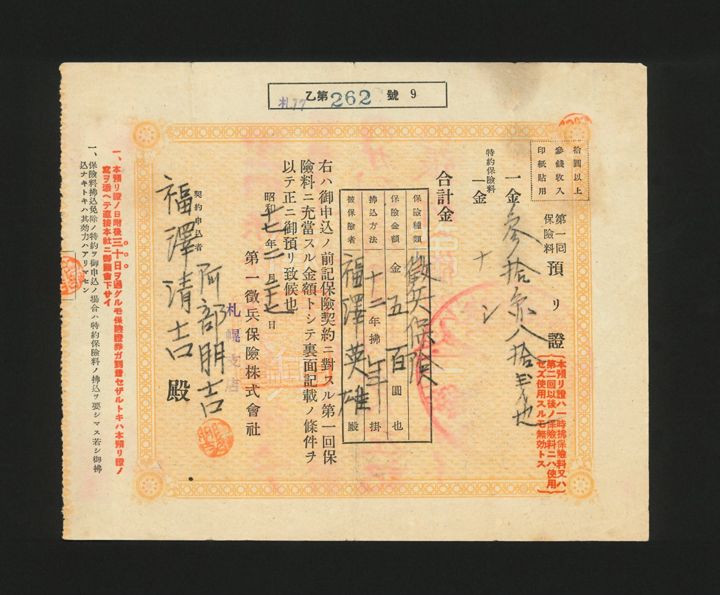 乙第262號 9
拾圓以上
參錢收入
印紙貼用
第一回保險料 預リ證
一金參拾
特約保險料 一金ナシ
合計金
保險種類 徵兵保險
保險金額 金五百圓也
拂込方法 十二年拂年掛
被保險者 福澤英雄殿
右ハ御申込ノ前記保險契約ニ對スル第一回保
險料ニ充當スル金額トシテ裏面記載ノ條件ヲ
以テ正ニ御預リ致候也
昭和十七年二月二十七日
第一徵兵保險株式會社
札幌支店
阿部朋吉
契約申込者
福澤清吉殿
本預リ證ハ一時拂保險料又ハ
第二回以後ノ保險料ニハ使用
セズ使用スルモ無効トス
一、本預リ證ノ日附後三十日ヲ過グルモ保險證券ガ到着セザルトキハ本預リ證ノ
寫ヲ添ヘテ直接本社ニ御照會下サイ
一、保險料拂込免除ノ特約ヲ御申込ノ場合ハ特約保險料ノ拂込ヲ要シマス若シ御拂
込ナキトキハ其効力ハアリマセン